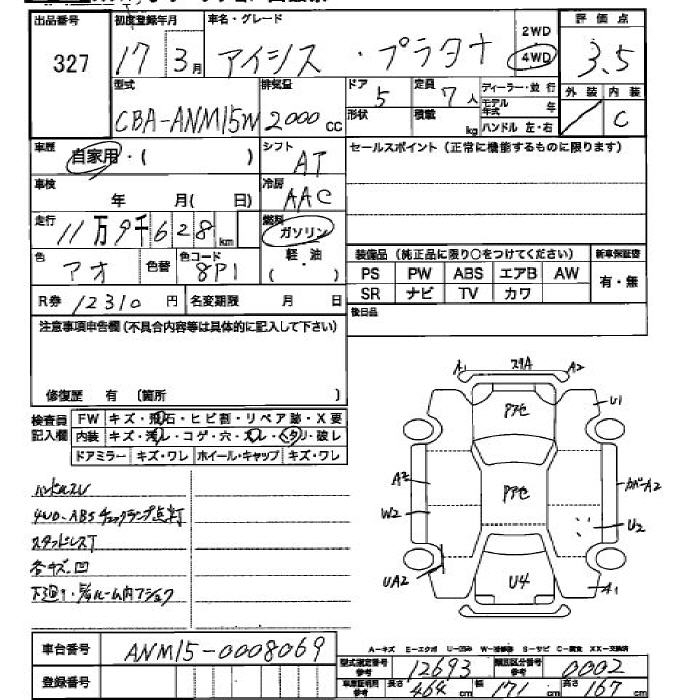 出品番号 初度登録年月 車名・グレード 2WD 評価点
327 17年 3月 アイシス・プラタナ 4WD 3.5
型式 排気量 ドア 定員 ディーラー・並行 外装 内装
CBA-ANM15W 2000cc 5 7人 モデル年式 年 C
形状 積載 kg ハンドル 左・右
車歴 自家用・( ) シフト AT セールスポイント(正常に機能するものに限ります)
車検 年 月( 日) 冷房 AAC
走行 11万9千628km 燃料 ガソリン
色 アオ 色替 色コード 8P1 軽・油 ( )
装備品(純正品に限り○をつけてください) 新車保証書
PS PW ABS エアB AW 有・無
SR ナビ TV カワ
R券 12310円 名変期限 月 日 後日品
注意事項申告欄(不具合内容等は具体的に記入して下さい)
修復歴 有 〔箇所 〕
検査員記入欄 FW キズ・飛石・ヒビ割・リペア跡・X要
内装 キズ・汚レ・コゲ・穴・スレ・ヘタリ・破レ
ドアミラー キズ・ワレ ホイール・キャップ キズ・ワレ
A1 スリA A2
U1
Pアセ
A2 Pアセ カバーA2
W2 U2
UA2 U4 A1
ハンドルスレ
4WD、ABSチェックランプ点灯
スタッドレスT
各キズ、凹
車台番号 ANM15-0008069
登録番号
A-キズ E-エクボ U-凹み W-補修跡 S-サビ C-腐食 XX-交換済
型式指定番号 参考 12693 類別区分番号 参考 0002
車庫証明用 参考 長さ 464cm 幅 171cm 高さ 167cm